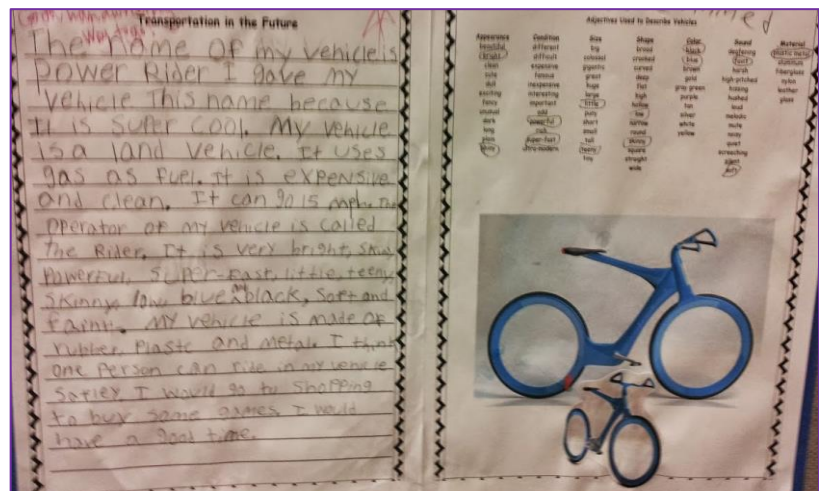 Transportation in the Future
The name of my vehicle is
power Rider I gave my
vehicle This name because
It is super cool. My vehicle
is a land vehicle. It uses
gas as fuel. It is expensive
and clean. It can go 15 mph. The
operator of my vehicle is called
the Rider. It is very bright, shiny,
Powerful, super-fast, little, teeny,
skinny, low, blue and black, soft and
faint. My vehicle is made of
rubber, Plastc and metal. I think
one Person can ride in my vehicle
safley I would go to shopping
to buy some games. I would
have a good time.
Adjectives Used to Describe Vehicles
Appearance Condition Size Shape Color Sound Material
beautiful different big broad black deafening plastic metal
bright difficult colossal crooked blue faint aluminum
clean expensive gigantic curved brown harsh fiberglass
cute famous great deep gold high-pitched nylon
dull inexpensive huge flat gray green hissing leather
exciting interesting large high purple hushed glass
fancy important little hollow tan loud
unusual odd petite low silver melodic
dark powerful short narrow white mute
long rich small round yellow noisy
plain super-fast tall skinny quiet
shiny ultra-modern teeny square screeching
tiny straight silent
wide soft